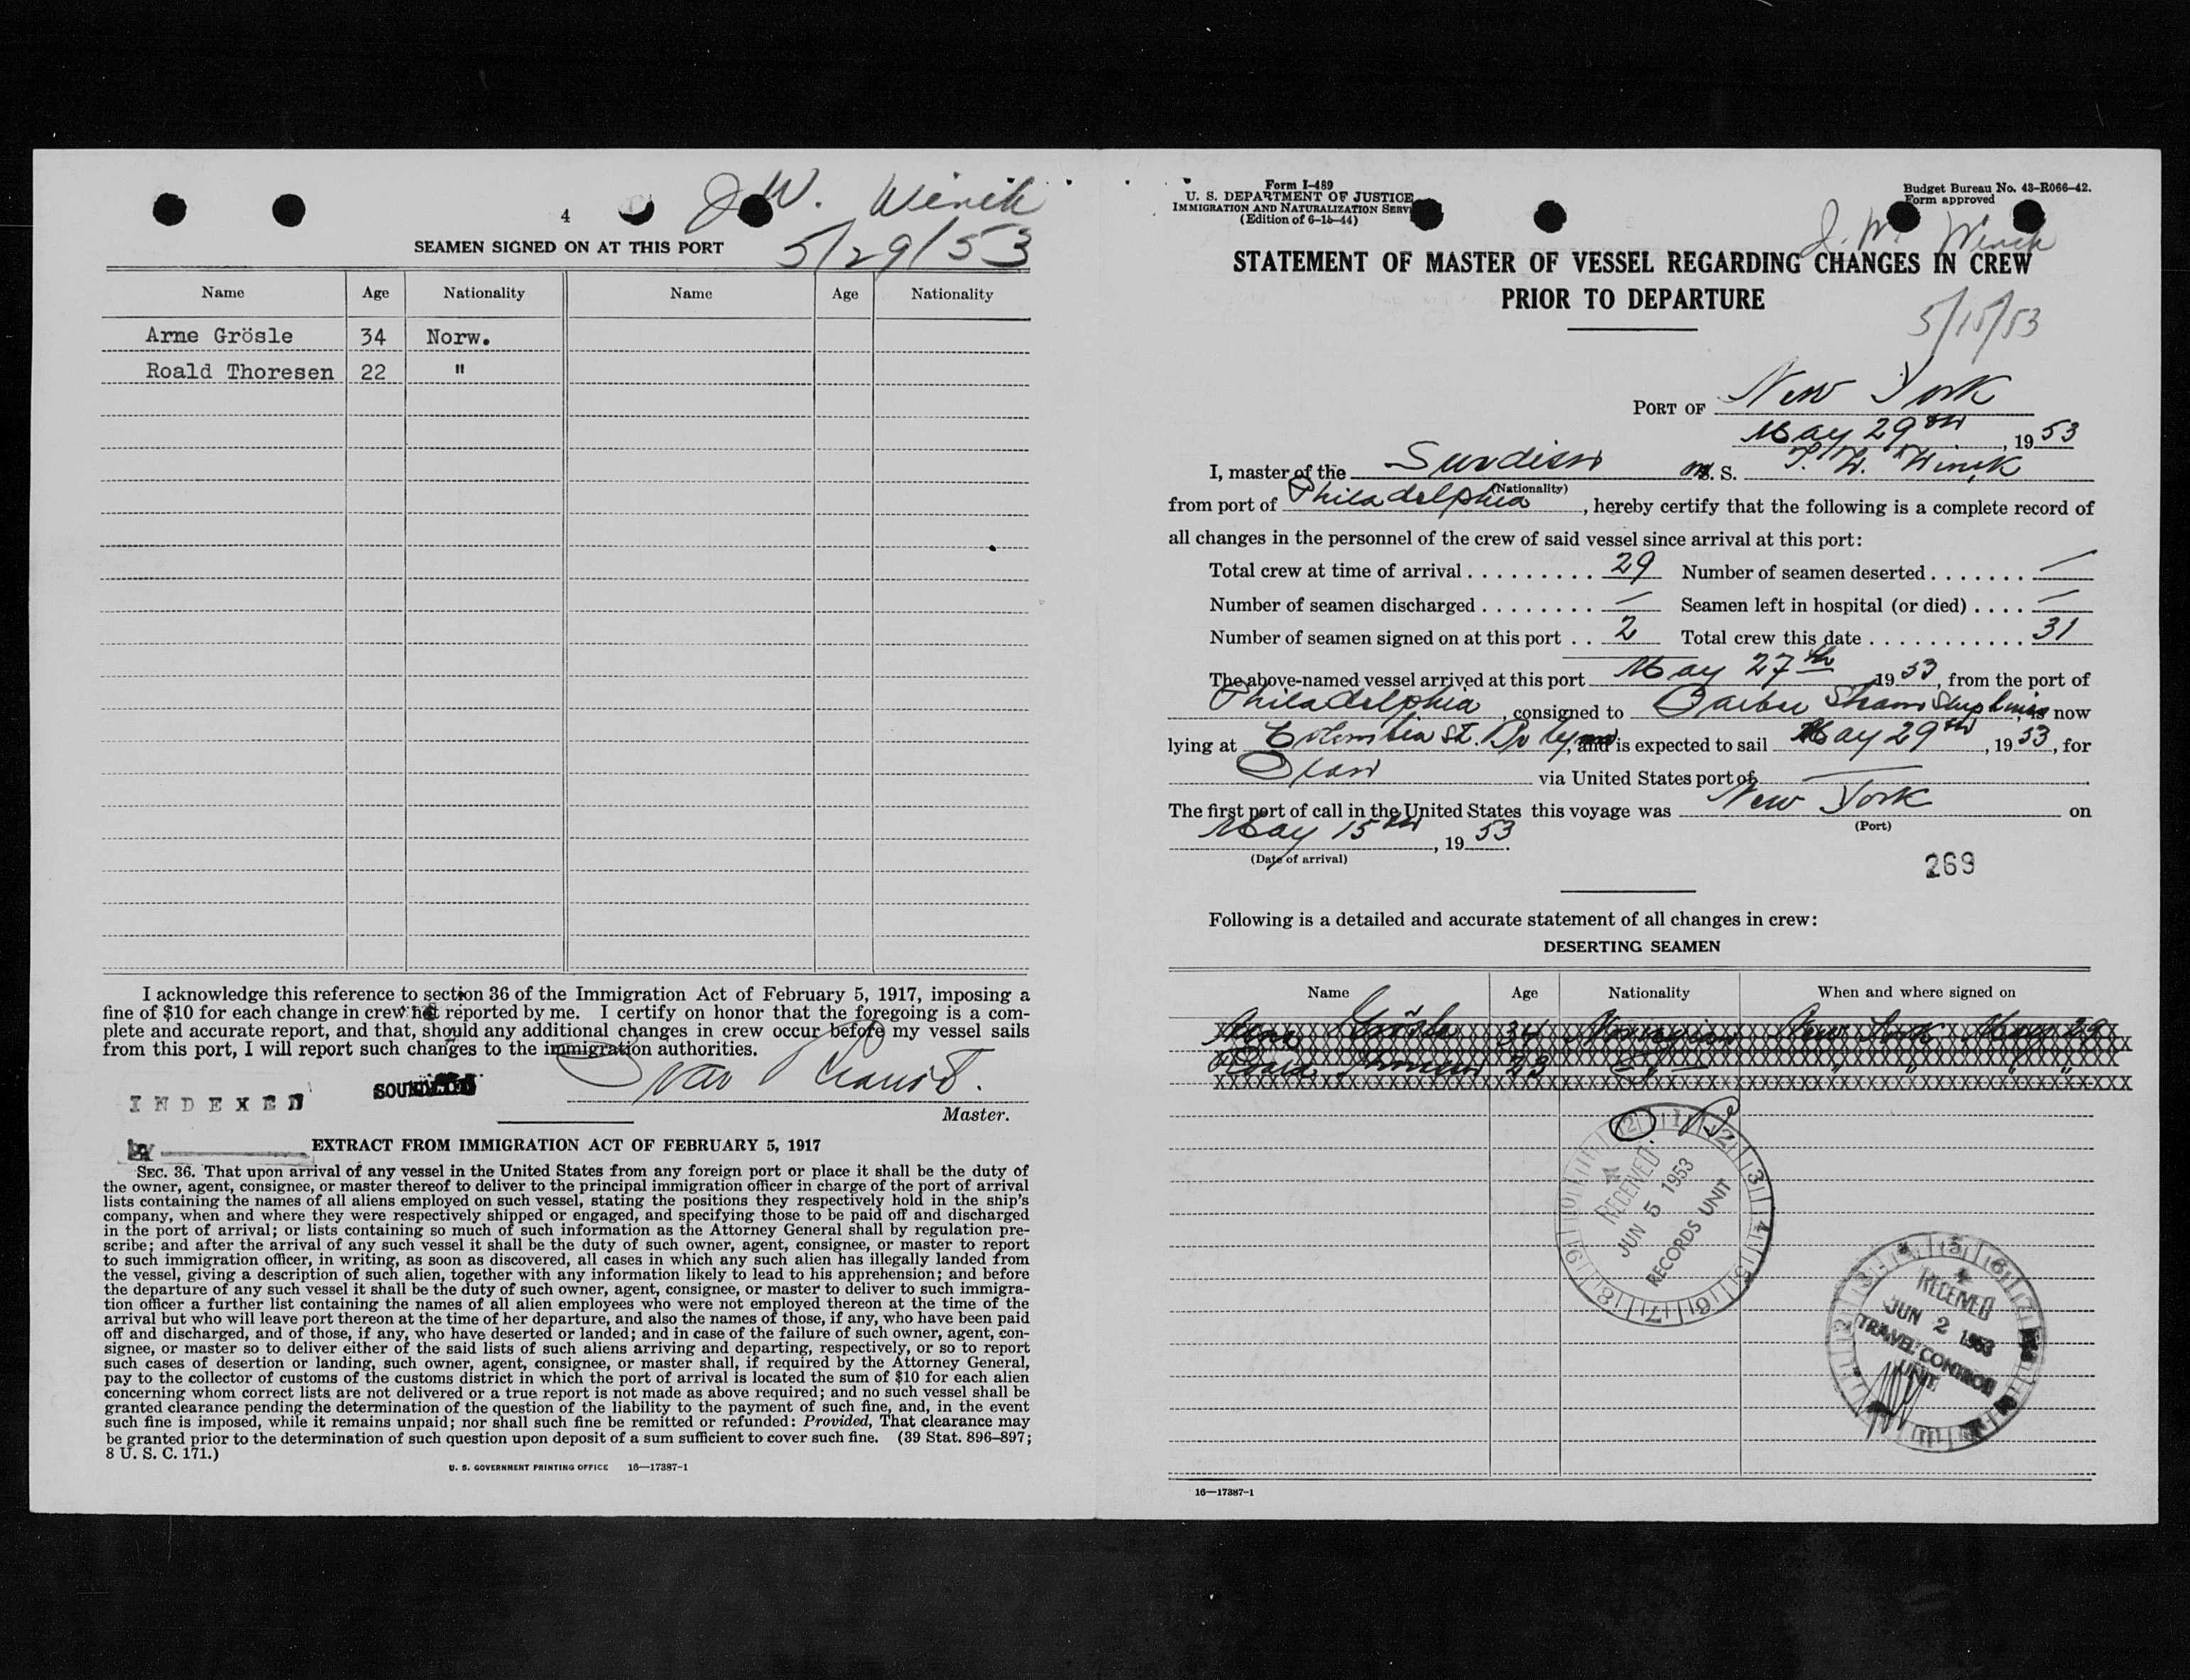 J. W. Winck
5/29/53
4
SEAMEN SIGNED ON AT THIS PORT
Name Age Nationality Name Age Nationality
Arne Grösle 34 Norw.
Roald Thoresen 22 "
I acknowledge this reference to section 36 of the Immigration Act of February 5, 1917, imposing a
fine of $10 for each change in crew not reported by me. I certify on honor that the foregoing is a com-
plete and accurate report, and that, should any additional changes in crew occur before my vessel sails
from this port, I will report such changes to the immigration authorities.
Ivar
Master.
INDEXED
by
EXTRACT FROM IMMIGRATION ACT OF FEBRUARY 5, 1917
SEC. 36. That upon arrival of any vessel in the United States from any foreign port or place it shall be the duty of
the owner, agent, consignee, or master thereof to deliver to the principal immigration officer in charge of the port of arrival
lists containing the names of all aliens employed on such vessel, stating the positions they respectively hold in the ship's
company, when and where they were respectively shipped or engaged, and specifying those to be paid off and discharged
in the port of arrival; or lists containing so much of such information as the Attorney General shall by regulation pre-
scribe; and after the arrival of any such vessel it shall be the duty of such owner, agent, consignee, or master to report
to such immigration officer, in writing, as soon as discovered, all cases in which any such alien has illegally landed from
the vessel, giving a description of such alien, together with any information likely to lead to his apprehension; and before
the departure of any such vessel it shall be the duty of such owner, agent, consignee, or master to deliver to such immigra-
tion officer a further list containing the names of all alien employees who were not employed thereon at the time of the
arrival but who will leave port thereon at the time of her departure, and also the names of those, if any, who have been paid
off and discharged, and of those, if any, who have deserted or landed; and in case of the failure of such owner, agent, con-
signee, or master so to deliver either of the said lists of such aliens arriving and departing, respectively, or so to report
such cases of desertion or landing, such owner, agent, consignee, or master shall, if required by the Attorney General,
pay to the collector of customs of the customs district in which the port of arrival is located the sum of $10 for each alien
concerning whom correct lists are not delivered or a true report is not made as above required; and no such vessel shall be
granted clearance pending the determination of the question of the liability to the payment of such fine, and, in the event
such fine is imposed, while it remains unpaid; nor shall such fine be remitted or refunded: Provided, That clearance may
be granted prior to the determination of such question upon deposit of a sum sufficient to cover such fine. (39 Stat. 896–897;
8 U. S. C. 171.)
U. S. GOVERNMENT PRINTING OFFICE 16—17387-1
Form I-489
U. S. DEPARTMENT OF JUSTICE
IMMIGRATION AND NATURALIZATION SERV
(Edition of 6-15-44)
Budget Bureau No. 43-R066-42.
Form approved
J. W. Winck
STATEMENT OF MASTER OF VESSEL REGARDING CHANGES IN CREW
PRIOR TO DEPARTURE
5/15/53
PORT OF New York
May 29th, 1953
I, master of the M. S. J. W. Winck
(Nationality)
from port of Philadelphia, hereby certify that the following is a complete record of
all changes in the personnel of the crew of said vessel since arrival at this port:
Total crew at time of arrival . . . . . . . . . . 29 Number of seamen deserted . . . . . . . —
Number of seamen discharged . . . . . . . . — Seamen left in hospital (or died) . . . . —
Number of seamen signed on at this port . . 2 Total crew this date . . . . . . . . . . . . 31
The above-named vessel arrived at this port May 27th 1953, from the port of
Philadelphia, consigned to Barber Steam Ship Lines, is now
lying at Columbia St. Bklyn, and is expected to sail May 29th, 1953, for
via United States port of —
The first port of call in the United States this voyage was New York on
(Port)
May 15th, 1953.
(Date of arrival)
269
Following is a detailed and accurate statement of all changes in crew:
DESERTING SEAMEN
Name Age Nationality When and where signed on
Arne Grösle 34 Norwegian New York May 29
Roald Thoresen 23 " " " "
RECEIVED
JUN 5 1953
RECORDS UNIT
RECEIVED
JUN 2 1953
TRAVEL CONTROL
UNIT
16—17387-1